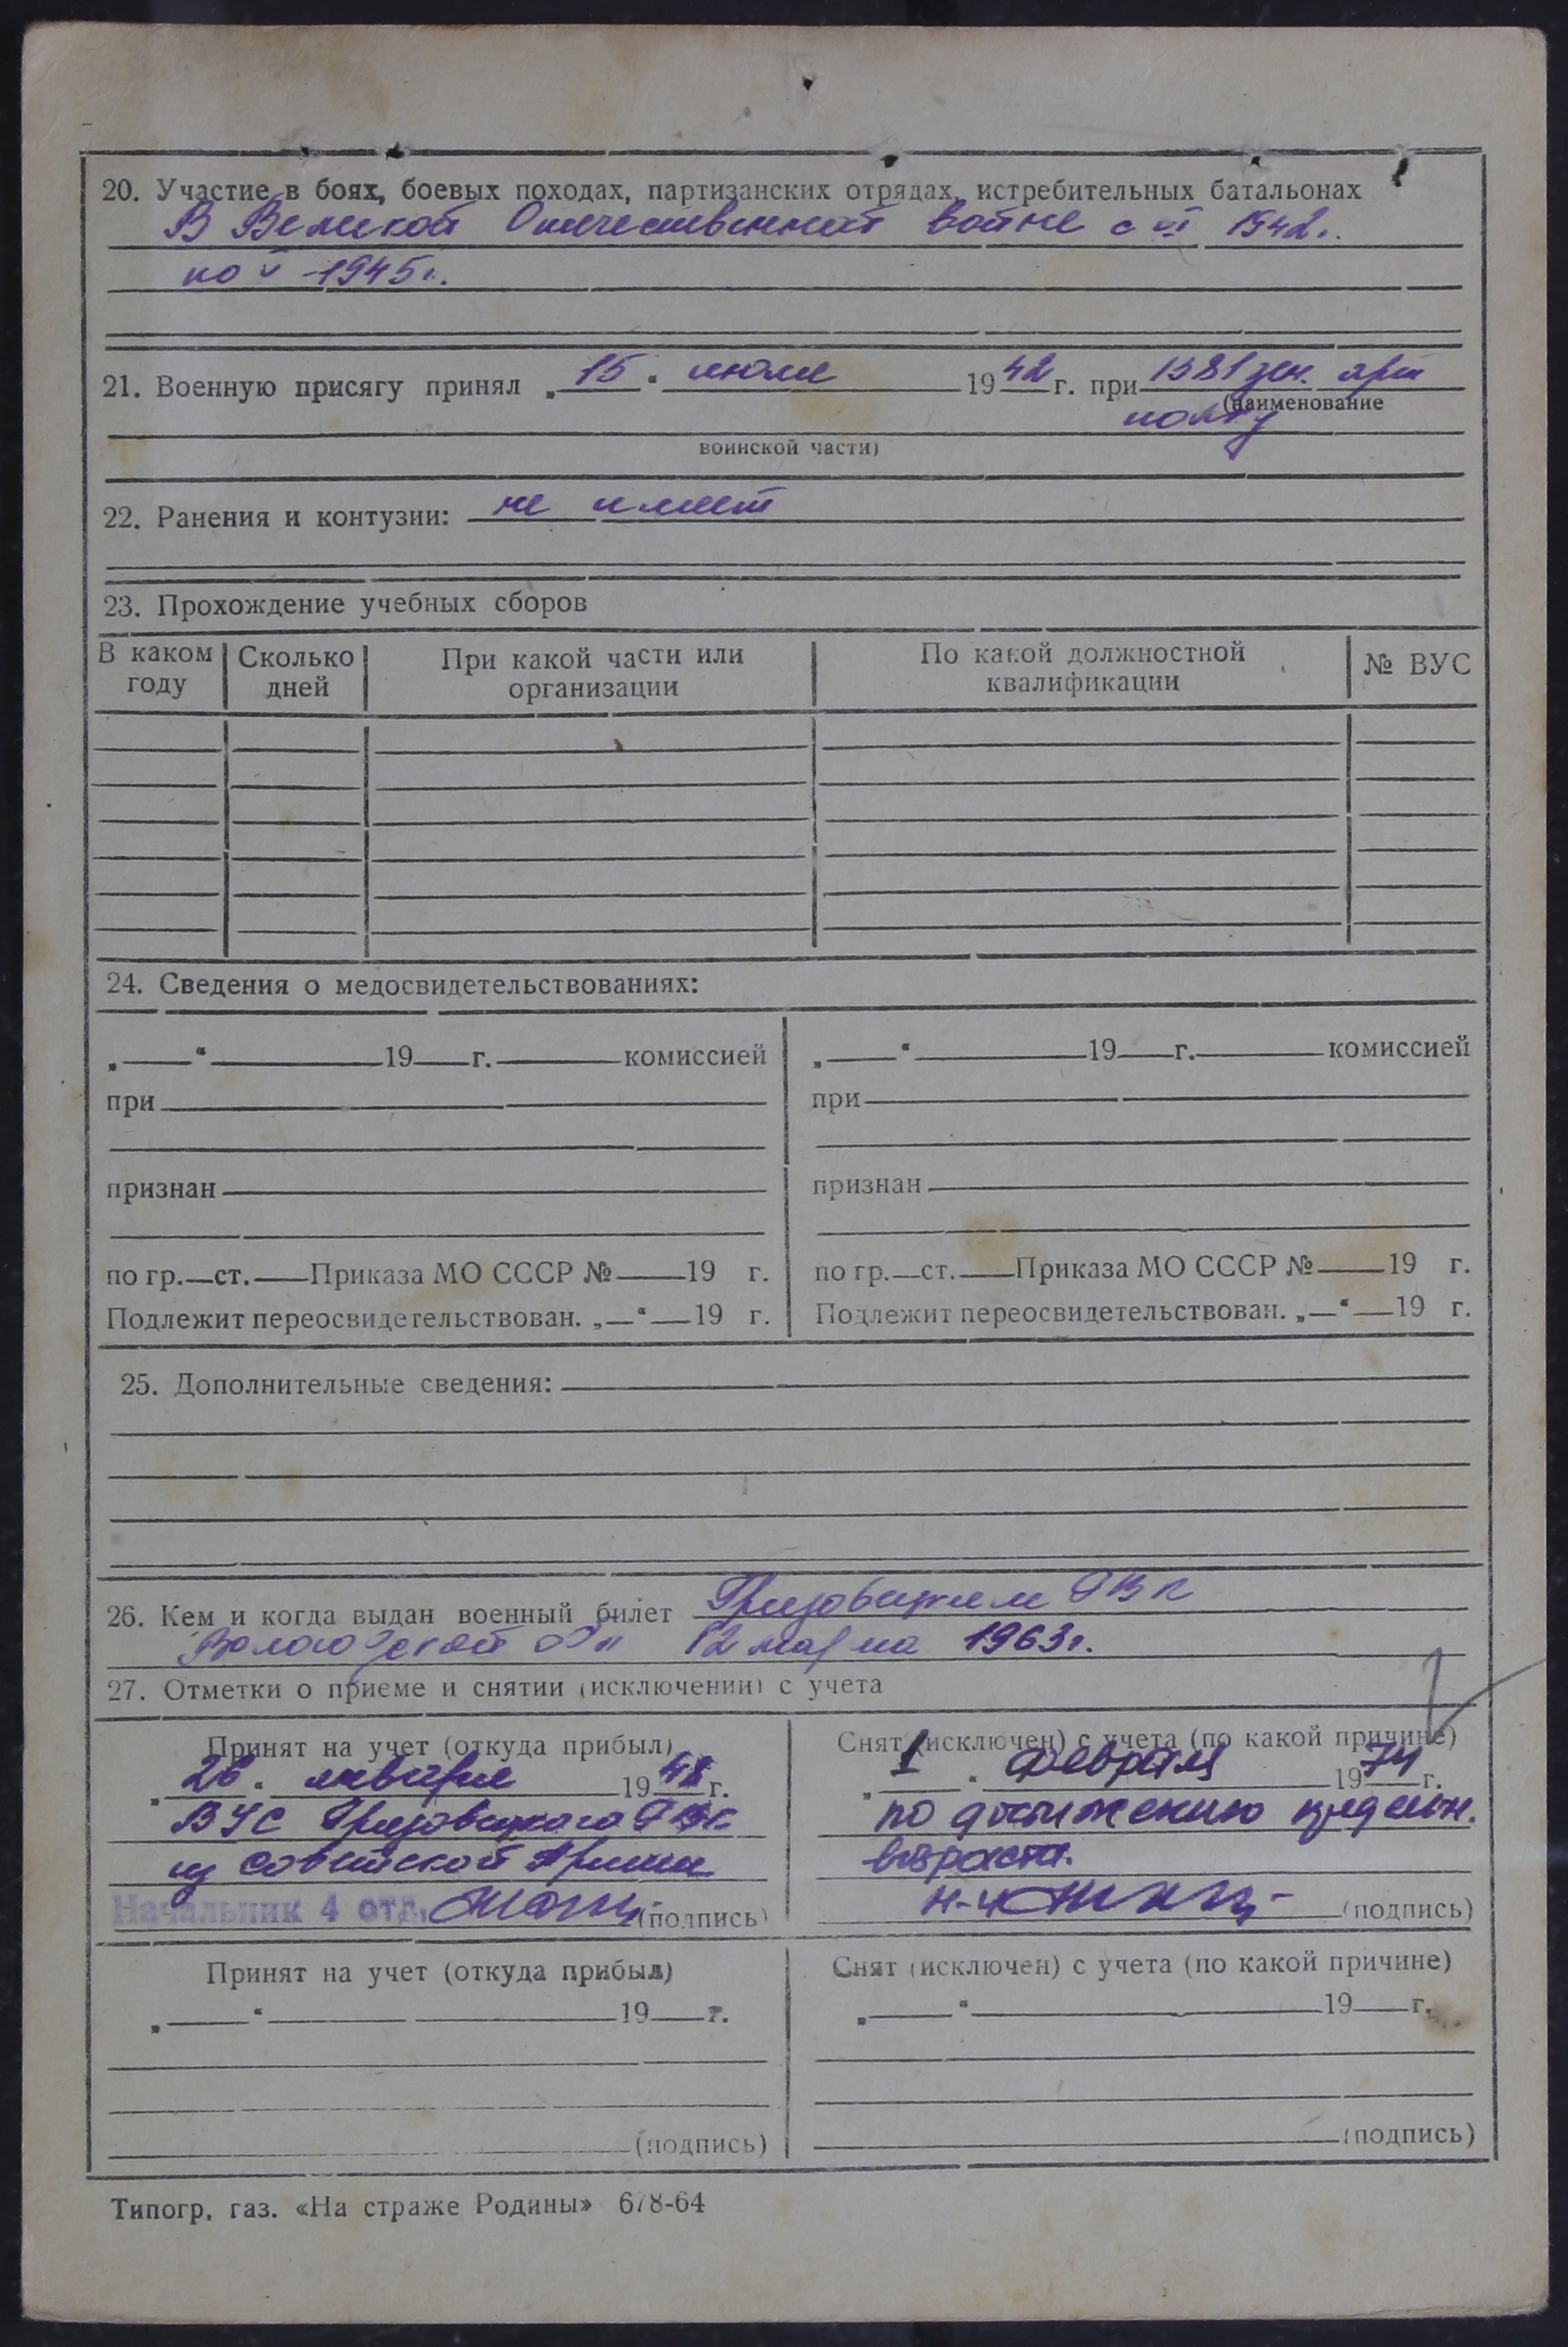 20. Участие в боях, боевых походах, партизанских отрядах, истребительных батальонах
В Великой Отечественной войне с VI 1942г.
по V -1945г.
21. Военную присягу принял „15“ июля 1942 г. при 1581 зен. арт
(наименование
полку
воинской части)
22. Ранения и контузии: не имеет
23. Прохождение учебных сборов
В каком году
Сколько дней
При какой части или организации
По какой должностной квалификации
№ ВУС
24. Сведения о медосвидетельствованиях:
„ “ 19 г. комиссией
при
признан
по гр. ст. Приказа МО СССР № 19 г.
Подлежит переосвидетельствован. „ “ 19 г.
„ “ 19 г. комиссией
при
признан
по гр. ст. Приказа МО СССР № 19 г.
Подлежит переосвидетельствован. „ “ 19 г.
25. Дополнительные сведения:
26. Кем и когда выдан военный билет Грязовецким РВК
Вологодской обл 12 марта 1963г.
27. Отметки о приеме и снятии (исключении) с учета
Принят на учет (откуда прибыл)
„26“ января 1948 г.
ВУС Грязовецкого РВК
из Советской Армии
Начальник 4 отд. (подпись)
Снят (исключен) с учета (по какой причине)
„1“ февраля 1974 г.
по достижению предельн.
возраста.
Н-4 (подпись)
Принят на учет (откуда прибыл)
„ “ 19 г.
(подпись)
Снят (исключен) с учета (по какой причине)
„ “ 19 г.
(подпись)
Типогр. газ. «На страже Родины» 678-64